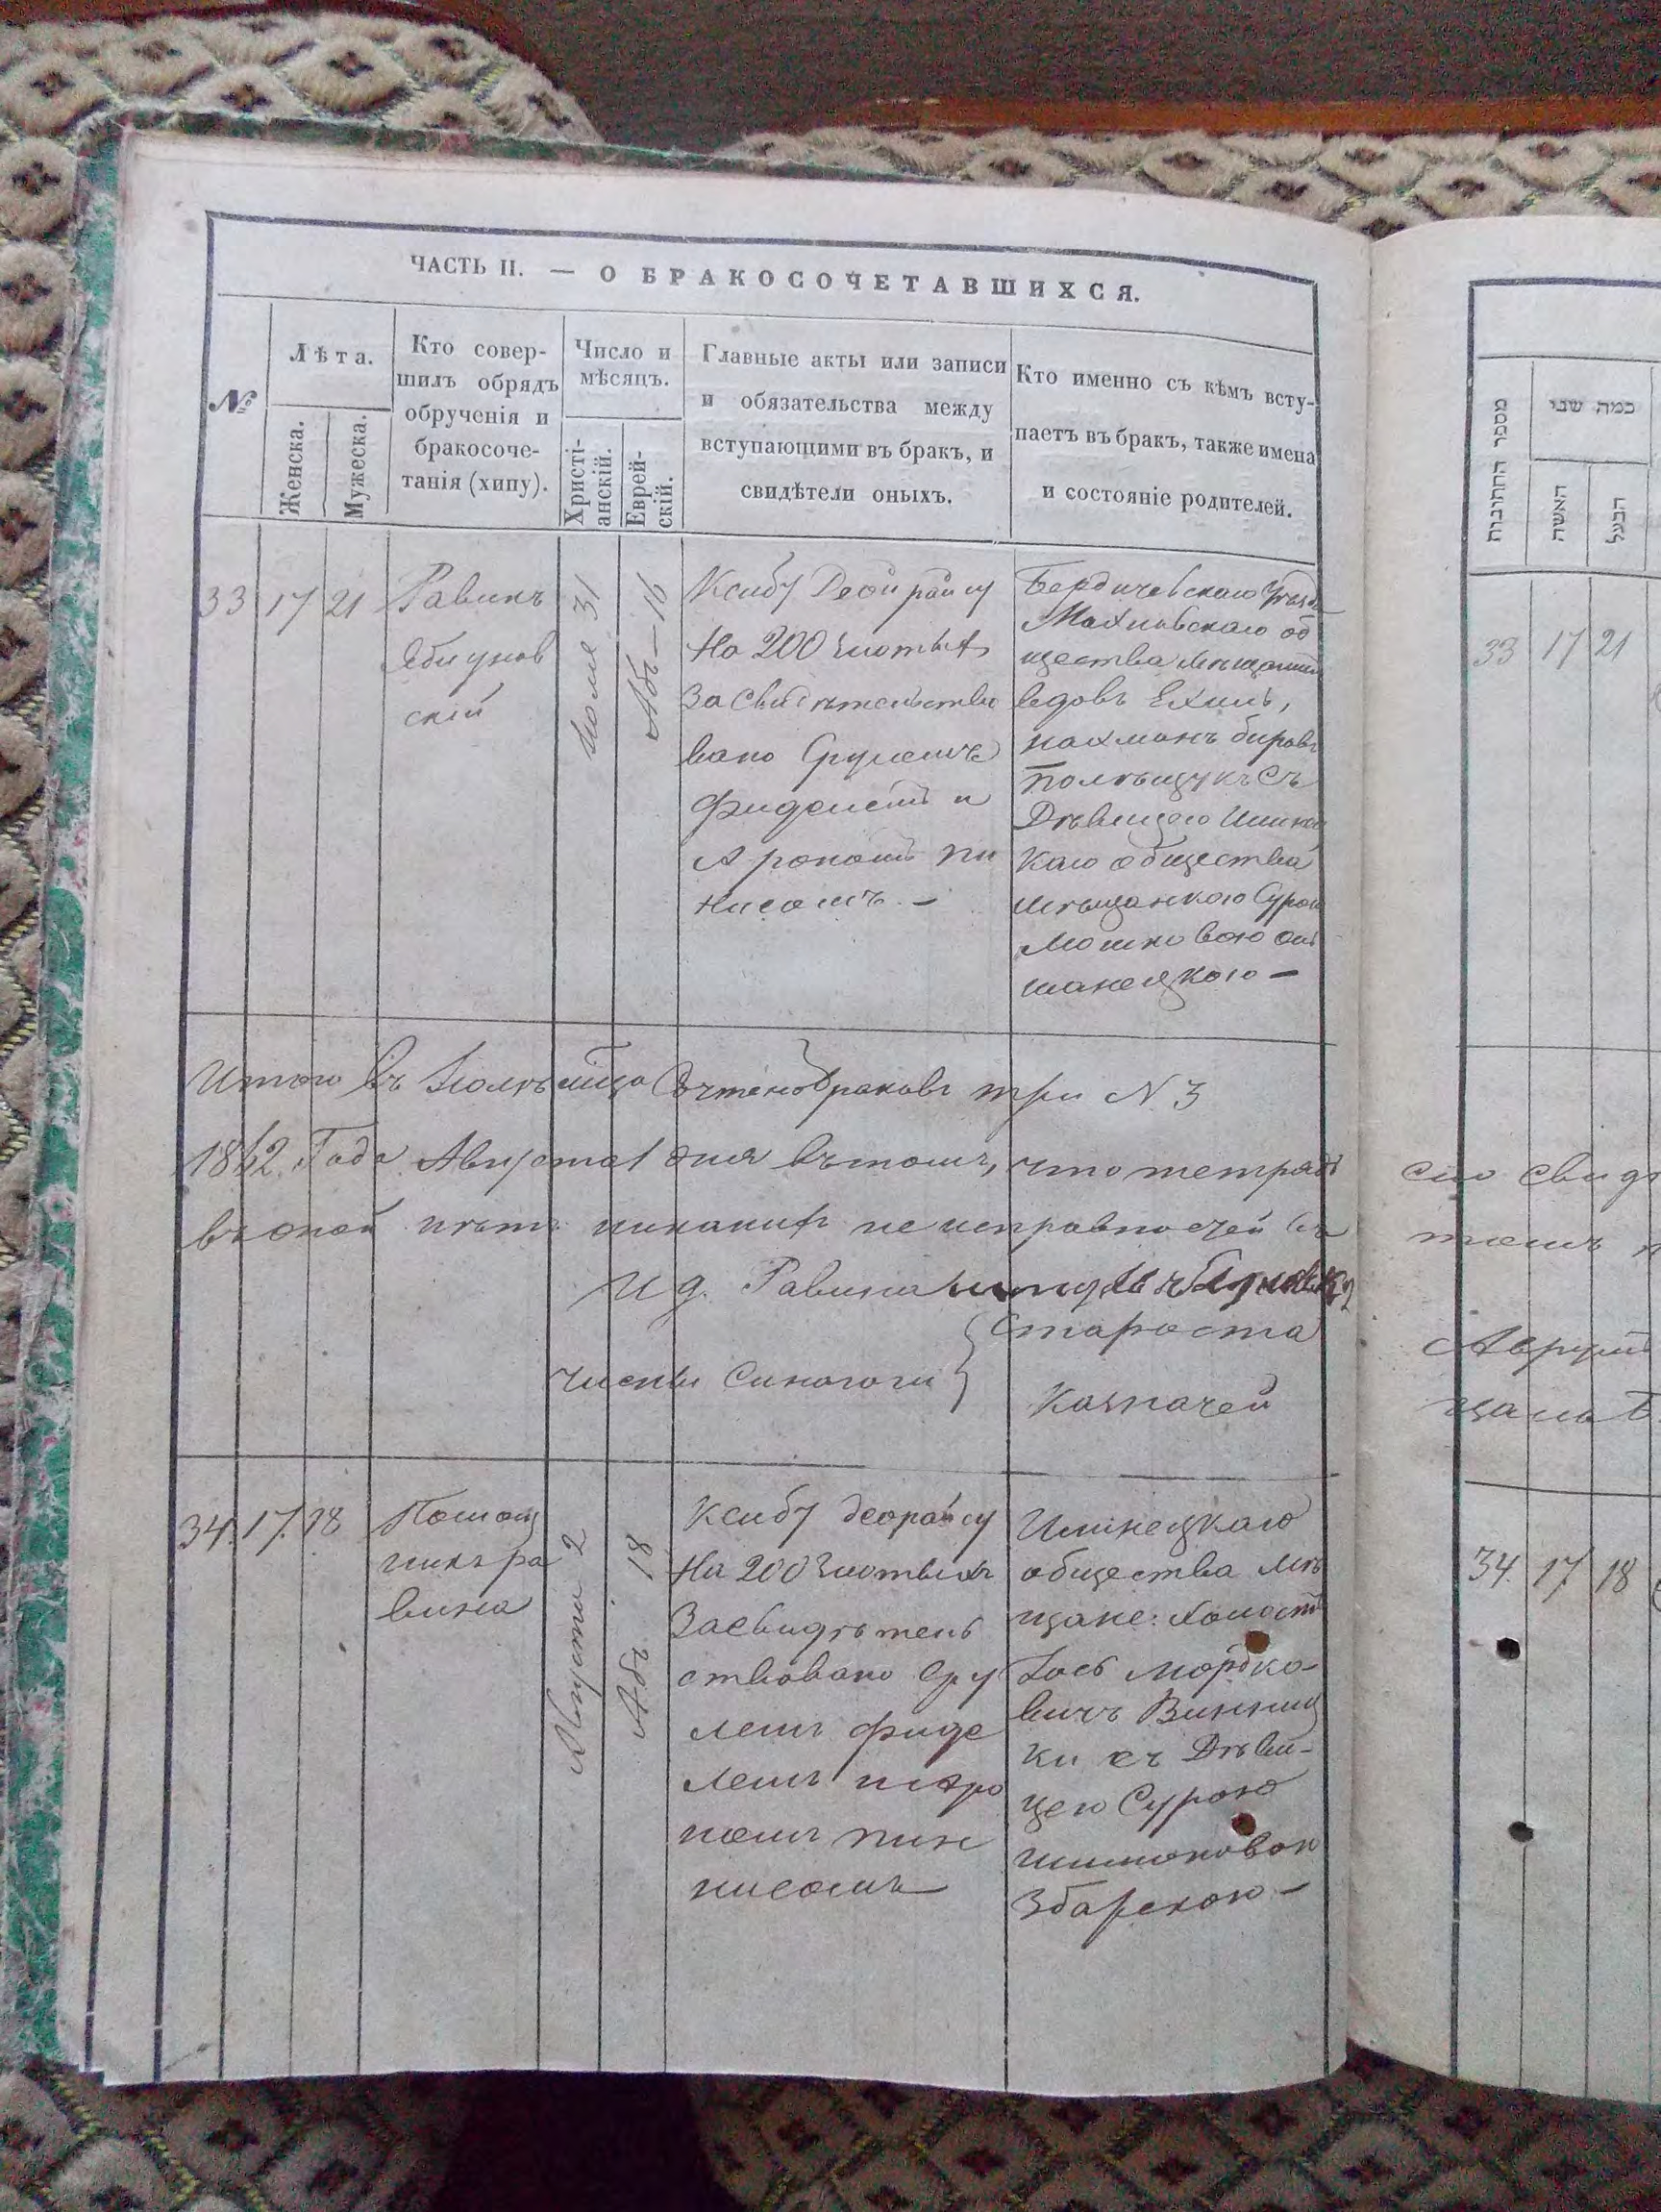 ЧАСТЬ II. — О БРАКОСОЧЕТАВШИХСЯ.
№
Лѣта.
Женска.
Мужеска.
Кто совер-
шилъ обрядъ
обрученія и
бракосоче-
танія (хипу).
Число и
мѣсяцъ.
Христі-
анскій.
Еврей-
скій.
Главные акты или записи
и обязательства между
вступающими въ бракъ, и
свидѣтели оныхъ.
Кто именно съ кѣмъ всту-
паетъ въ бракъ, также имена
и состояніе родителей.
33
17
21
Равинъ
скій
Июля 31
Абъ — 16
Ксибу Деойрайсу
На 200 злотыхъ
Засвидѣтельство
вано Срулемъ
Фиделемъ и
Арономъ Пи
нисомъ. —
Бердичевскаго Уезда
Махновскаго об
щества мѣщанинъ
вдовъ Ехиль,
Полѣщукъ съ
Дѣвицею
каго общества
мѣщанкою Сурою
Мошковою
Итого въ три N 3
1862 Года Августа 1 дня въ томъ, что тетрадь
въ оной нѣтъ никакихъ неисправностей
И д. Равина
Члены Синагоги
Староста
Казначей
34.
17.
18
Помощ
никъ ра
вина
Августа 2
Абъ 18
Ксибу деорайсу
На 200 злотыхъ
Засвидѣтель
ствовано Сру
лемъ Фиде
лемъ и Аро
номъ Пин
нисомъ
общества мѣ
щане: холостъ
Іось Мордко-
вичъ Винниц
ки съ Дѣви-
цею Сурою
Збарскою —
מספר החתונות
כמה שני
האשה
הבעל
33
17
21
34.
17.
18